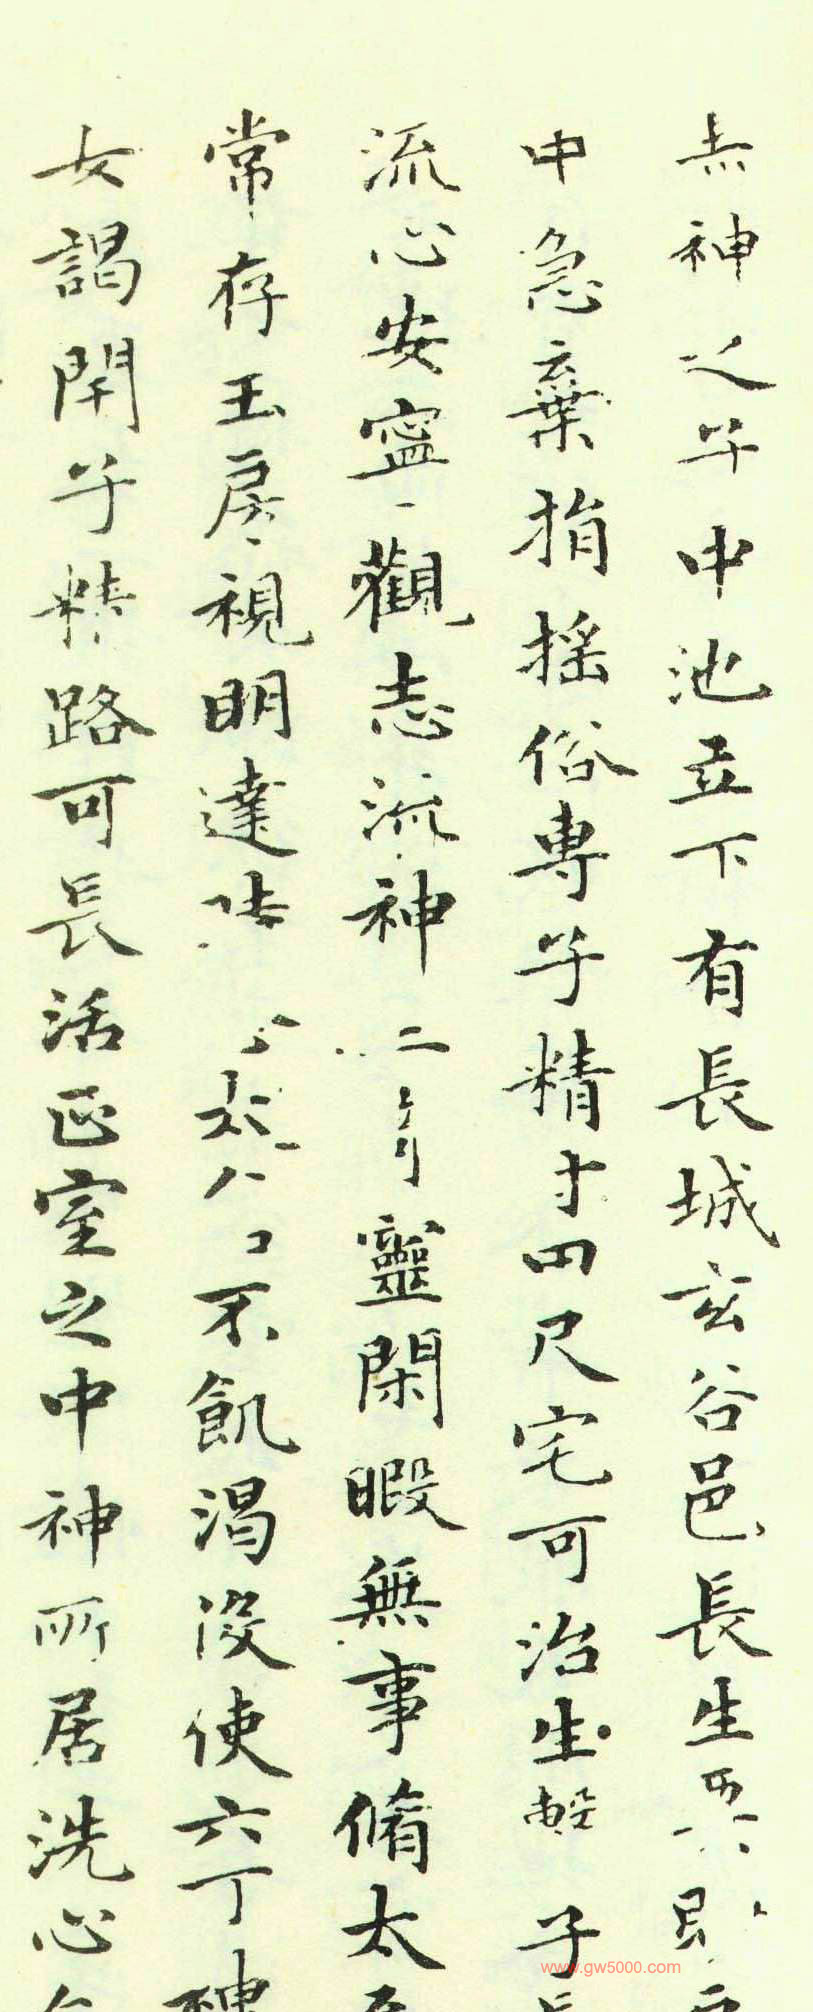 赤神之子中池立下有長城玄谷邑長生要眇
中急棄捐搖俗專子精寸田尺宅可治生 子
流心安寧觀志流神三奇靈閑暇無事脩太
常存玉房視明達時 太 不飢渴役使六丁神
女謁閉子精路可長活正室之中神所居洗心
www.gw5000.com